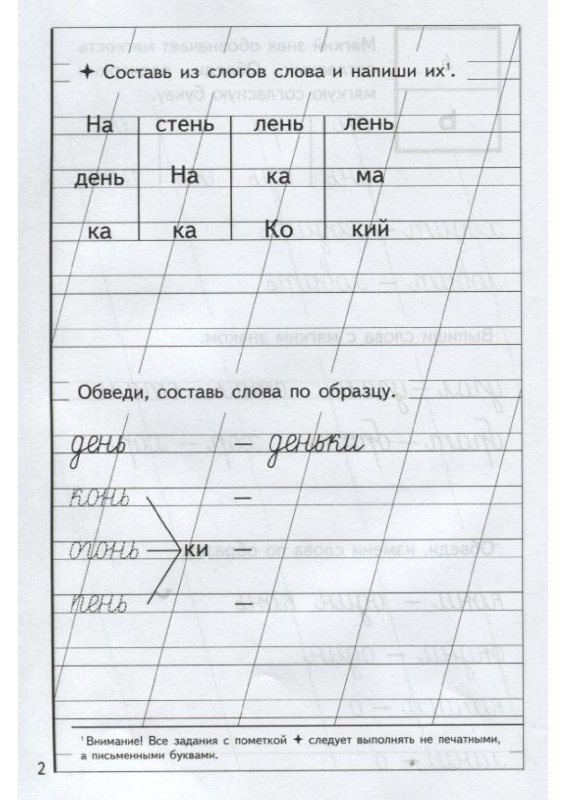 ✦ Составь из слогов слова и напиши их¹.
На стень лень лень
день На ка ма
ка ка Ко кий
Обведи, составь слова по образцу.
день – деньки
конь –
огонь – ки –
пень –
¹ Внимание! Все задания с пометкой ✦ следует выполнять не печатными,
а письменными буквами.
2